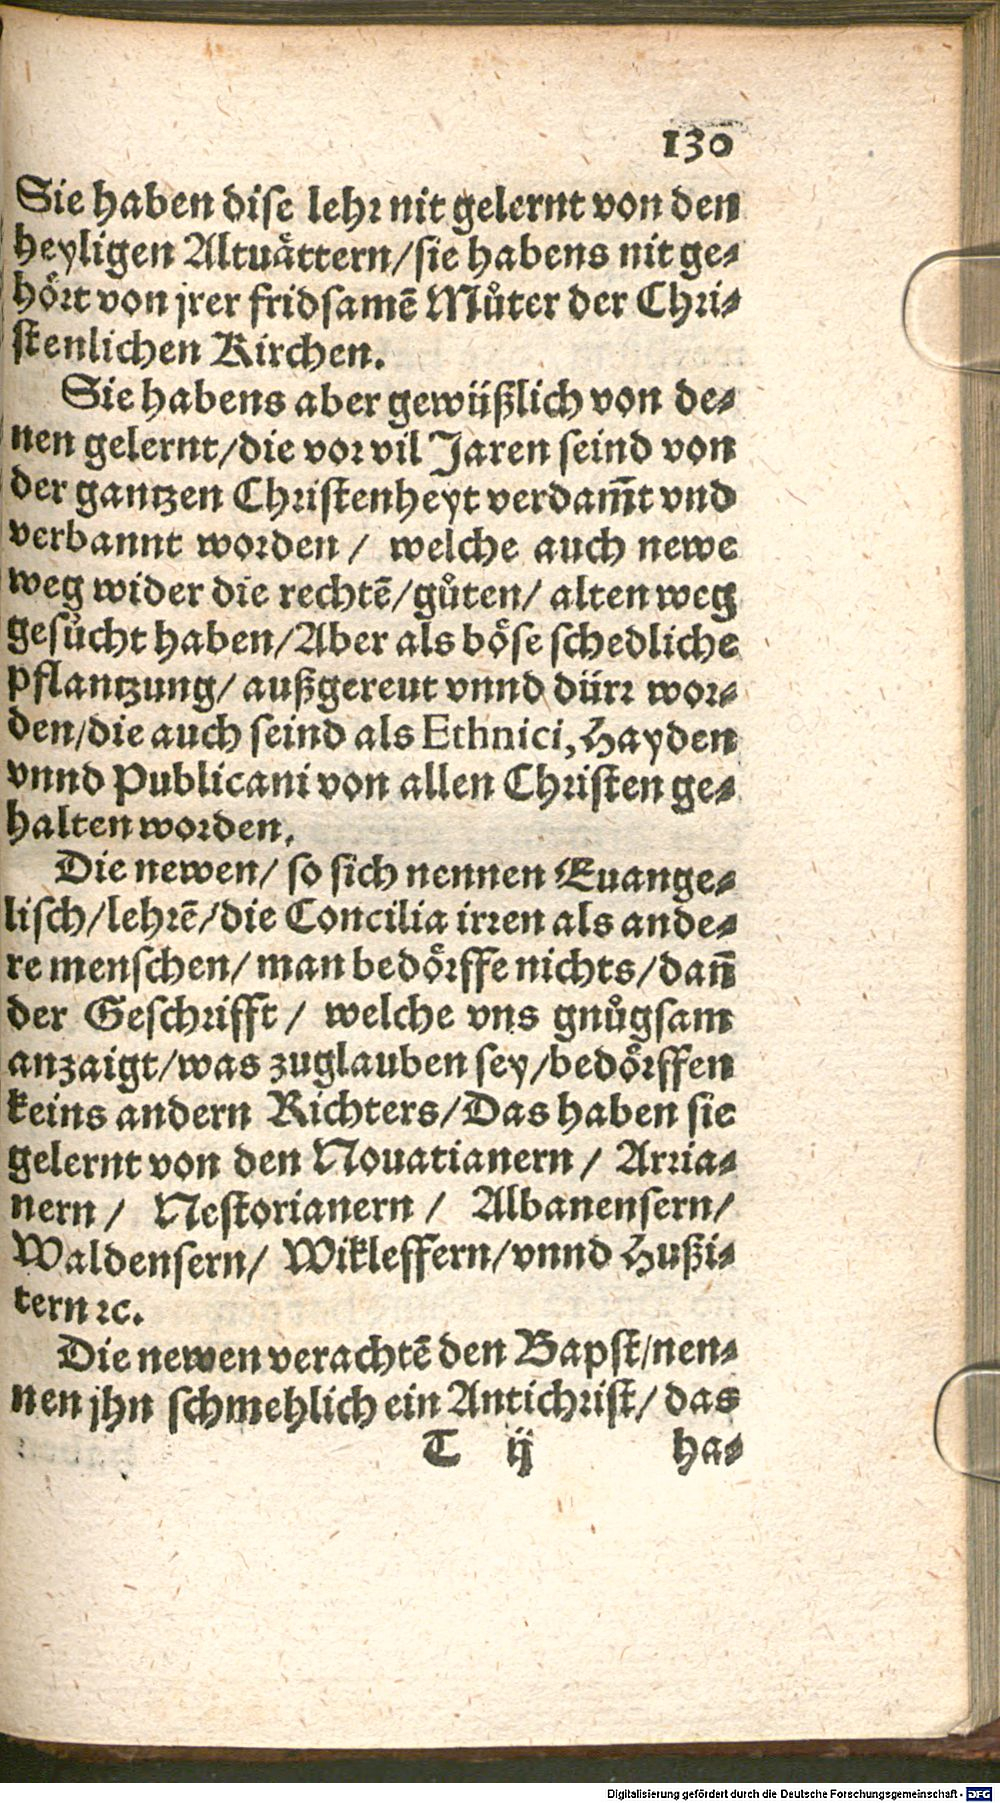 130
Sie haben dise lehr nit gelernt von den
heyligen Altuättern/sie habens nit ge-
hört von jrer fridsamē Můter der Chri-
stenlichen Kirchen.
Sie habens aber gewüßlich von de-
nen gelernt/die vor vil Jaren seind von
der gantzen Christenheyt verdam̄t vnd
verbannt worden / welche auch newe
weg wider die rechtē/gůten/ alten weg
gesůcht haben/Aber als böse schedliche
pflantzung/ außgereut vnnd dürr wor-
den/die auch seind als Ethnici, Hayden
vnnd Publicani von allen Christen ge-
halten worden.
Die newen/ so sich nennen Euange-
lisch/lehrē/die Concilia irren als ande-
re menschen/ man bedörffe nichts/dan̄
der Geschrifft / welche vns gnůgsam
anzaigt/was zuglauben sey/bedörffen
keins andern Richters/Das haben sie
gelernt von den Nouatianern / Arria-
nern / Nestorianern / Albanensern/
Waldensern/ Wikleffern/vnnd Hußi-
tern ꝛc.
Die newen verachtē den Bapst/nen-
nen jhn schmehlich ein Antichrist/ das
T ij ha-
Digitalisierung gefördert durch die Deutsche Forschungsgemeinschaft - DFG